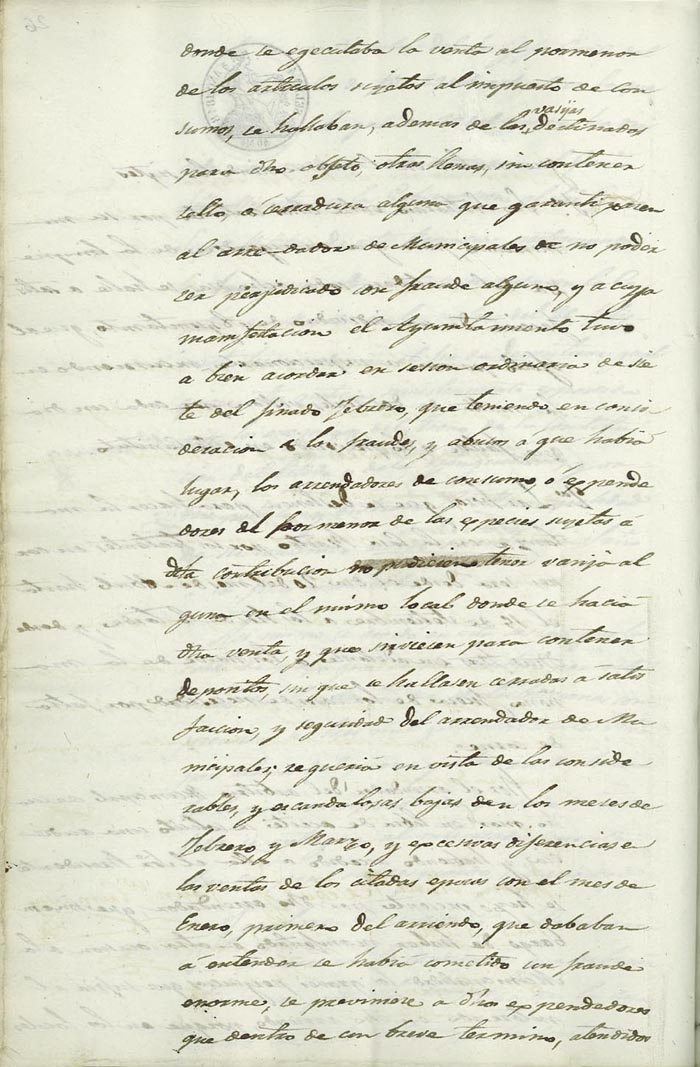 26
donde se egecutaba la venta al pormenor
de los articulos sujetos al impuesto de con
sumos, se hallaban, ademas de las vasijas destinados
para dho objeto, otras llenas, sin contener
sello, ó cerradura alguna que garantizasen
al arrendador de Municipales de no poder
ser perjudicado con fraude alguno, y a cuya
manifestacion el Ayuntamiento tuvo
a bien acordar en sesion ordinaria de sie
te del finado Febrero, que teniendo en consi
deracion a los fraudes, y abusos á que habia
lugar, los arrendadores de consumo, ó expende
dores al pormenor de las especies sujetas á
dha contribucion no pudiesen tener vasija al
guna en el mismo local donde se hacia
dha venta, y que sirviesen para contener
depositos, sin que se hallasen cerradas á satis
faccion, y seguridad del arrendador de Mu
nicipales; requeria en vista de las conside
rables, y escandalosas bajas de los meses de
Febrero y Marzo, y excesivas diferencias e
las ventas de los citadas epocas con el mes de
Enero, primero del arriendo, que dababan
á entender se habia cometido un fraude
enorme, se previniere a dhos expendedores
que dentro de un breve termino, atendidos